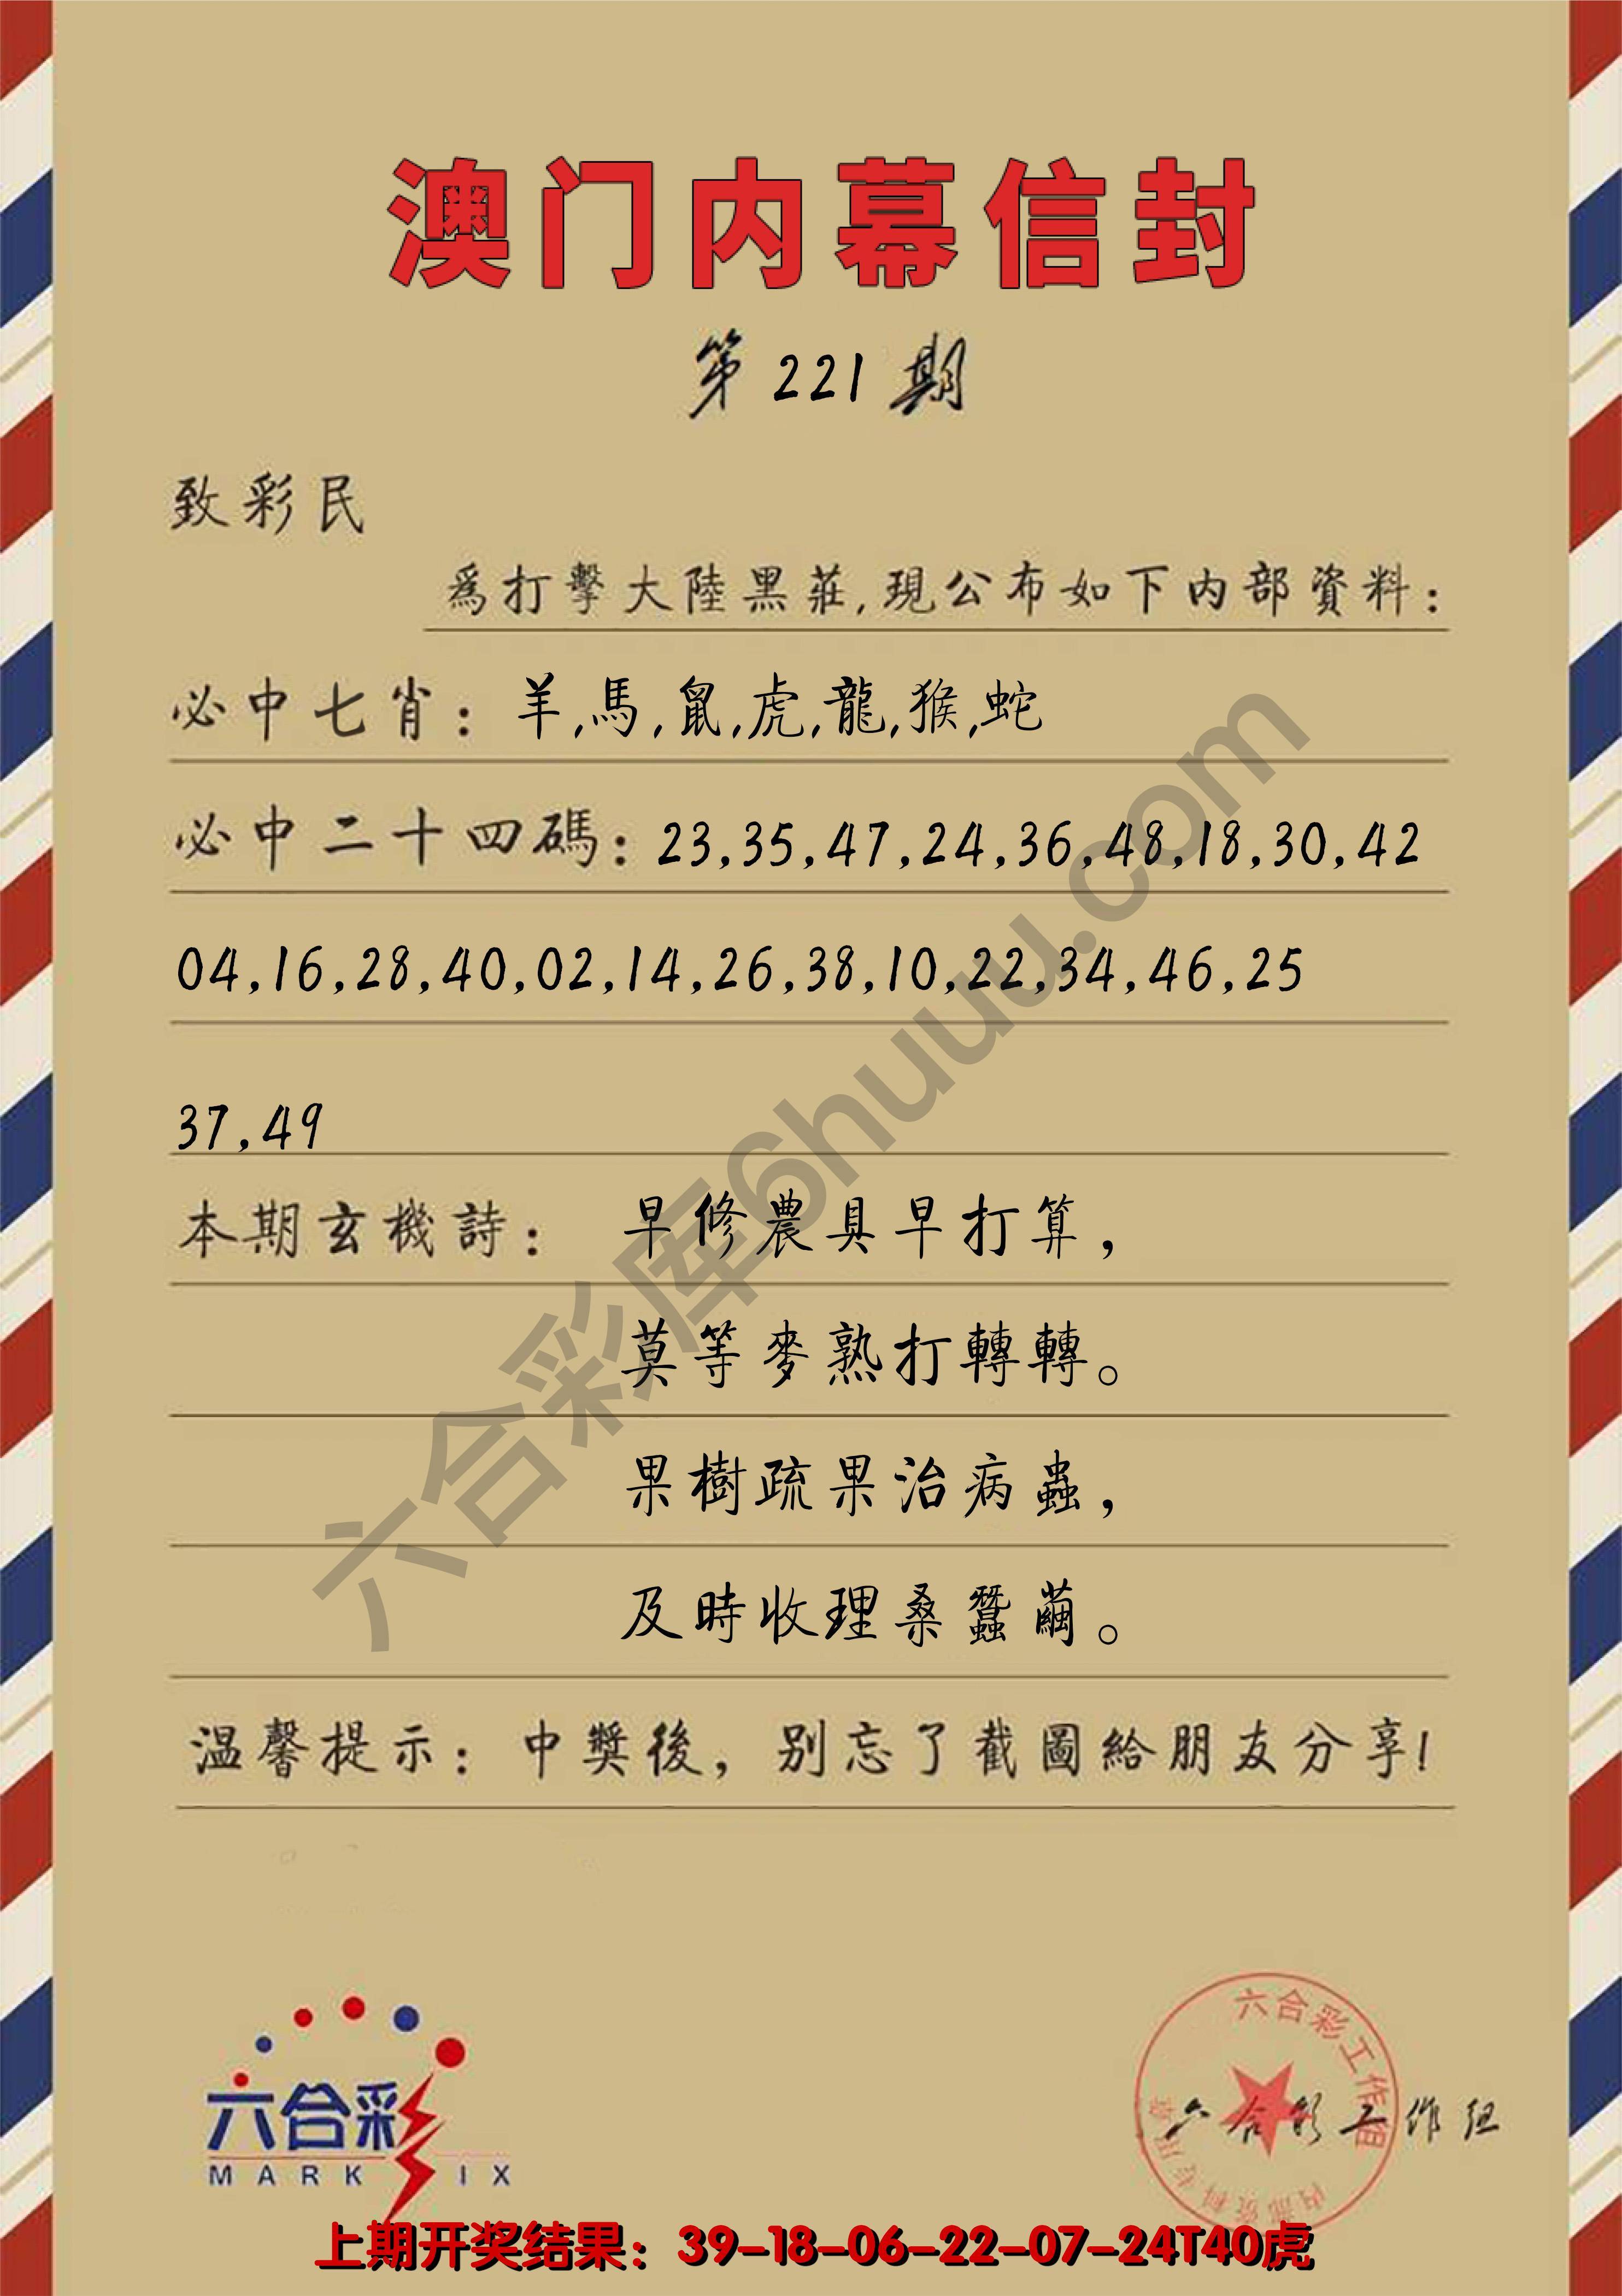 澳门内幕信封
第221期
致彩民
爲打擊大陸黑莊,現公布如下内部資料:
必中七肖: 羊,馬,鼠,虎,龍,猴,蛇
必中二十四碼: 23,35,47,24,36,48,18,30,42
04,16,28,40,02,14,26,38,10,22,34,46,25
37,49
本期玄機詩: 早修農具早打算,
莫等麥熟打轉轉。
果樹疏果治病蟲,
及時收理桑蠶繭。
温馨提示:中獎後,別忘了截圖給朋友分享!
六合彩库6huuu.com
六合彩
MARK IX
六合彩工作组
内部资料专用章
六合彩工作组
上期开奖结果:39-18-06-22-07-24T40虎